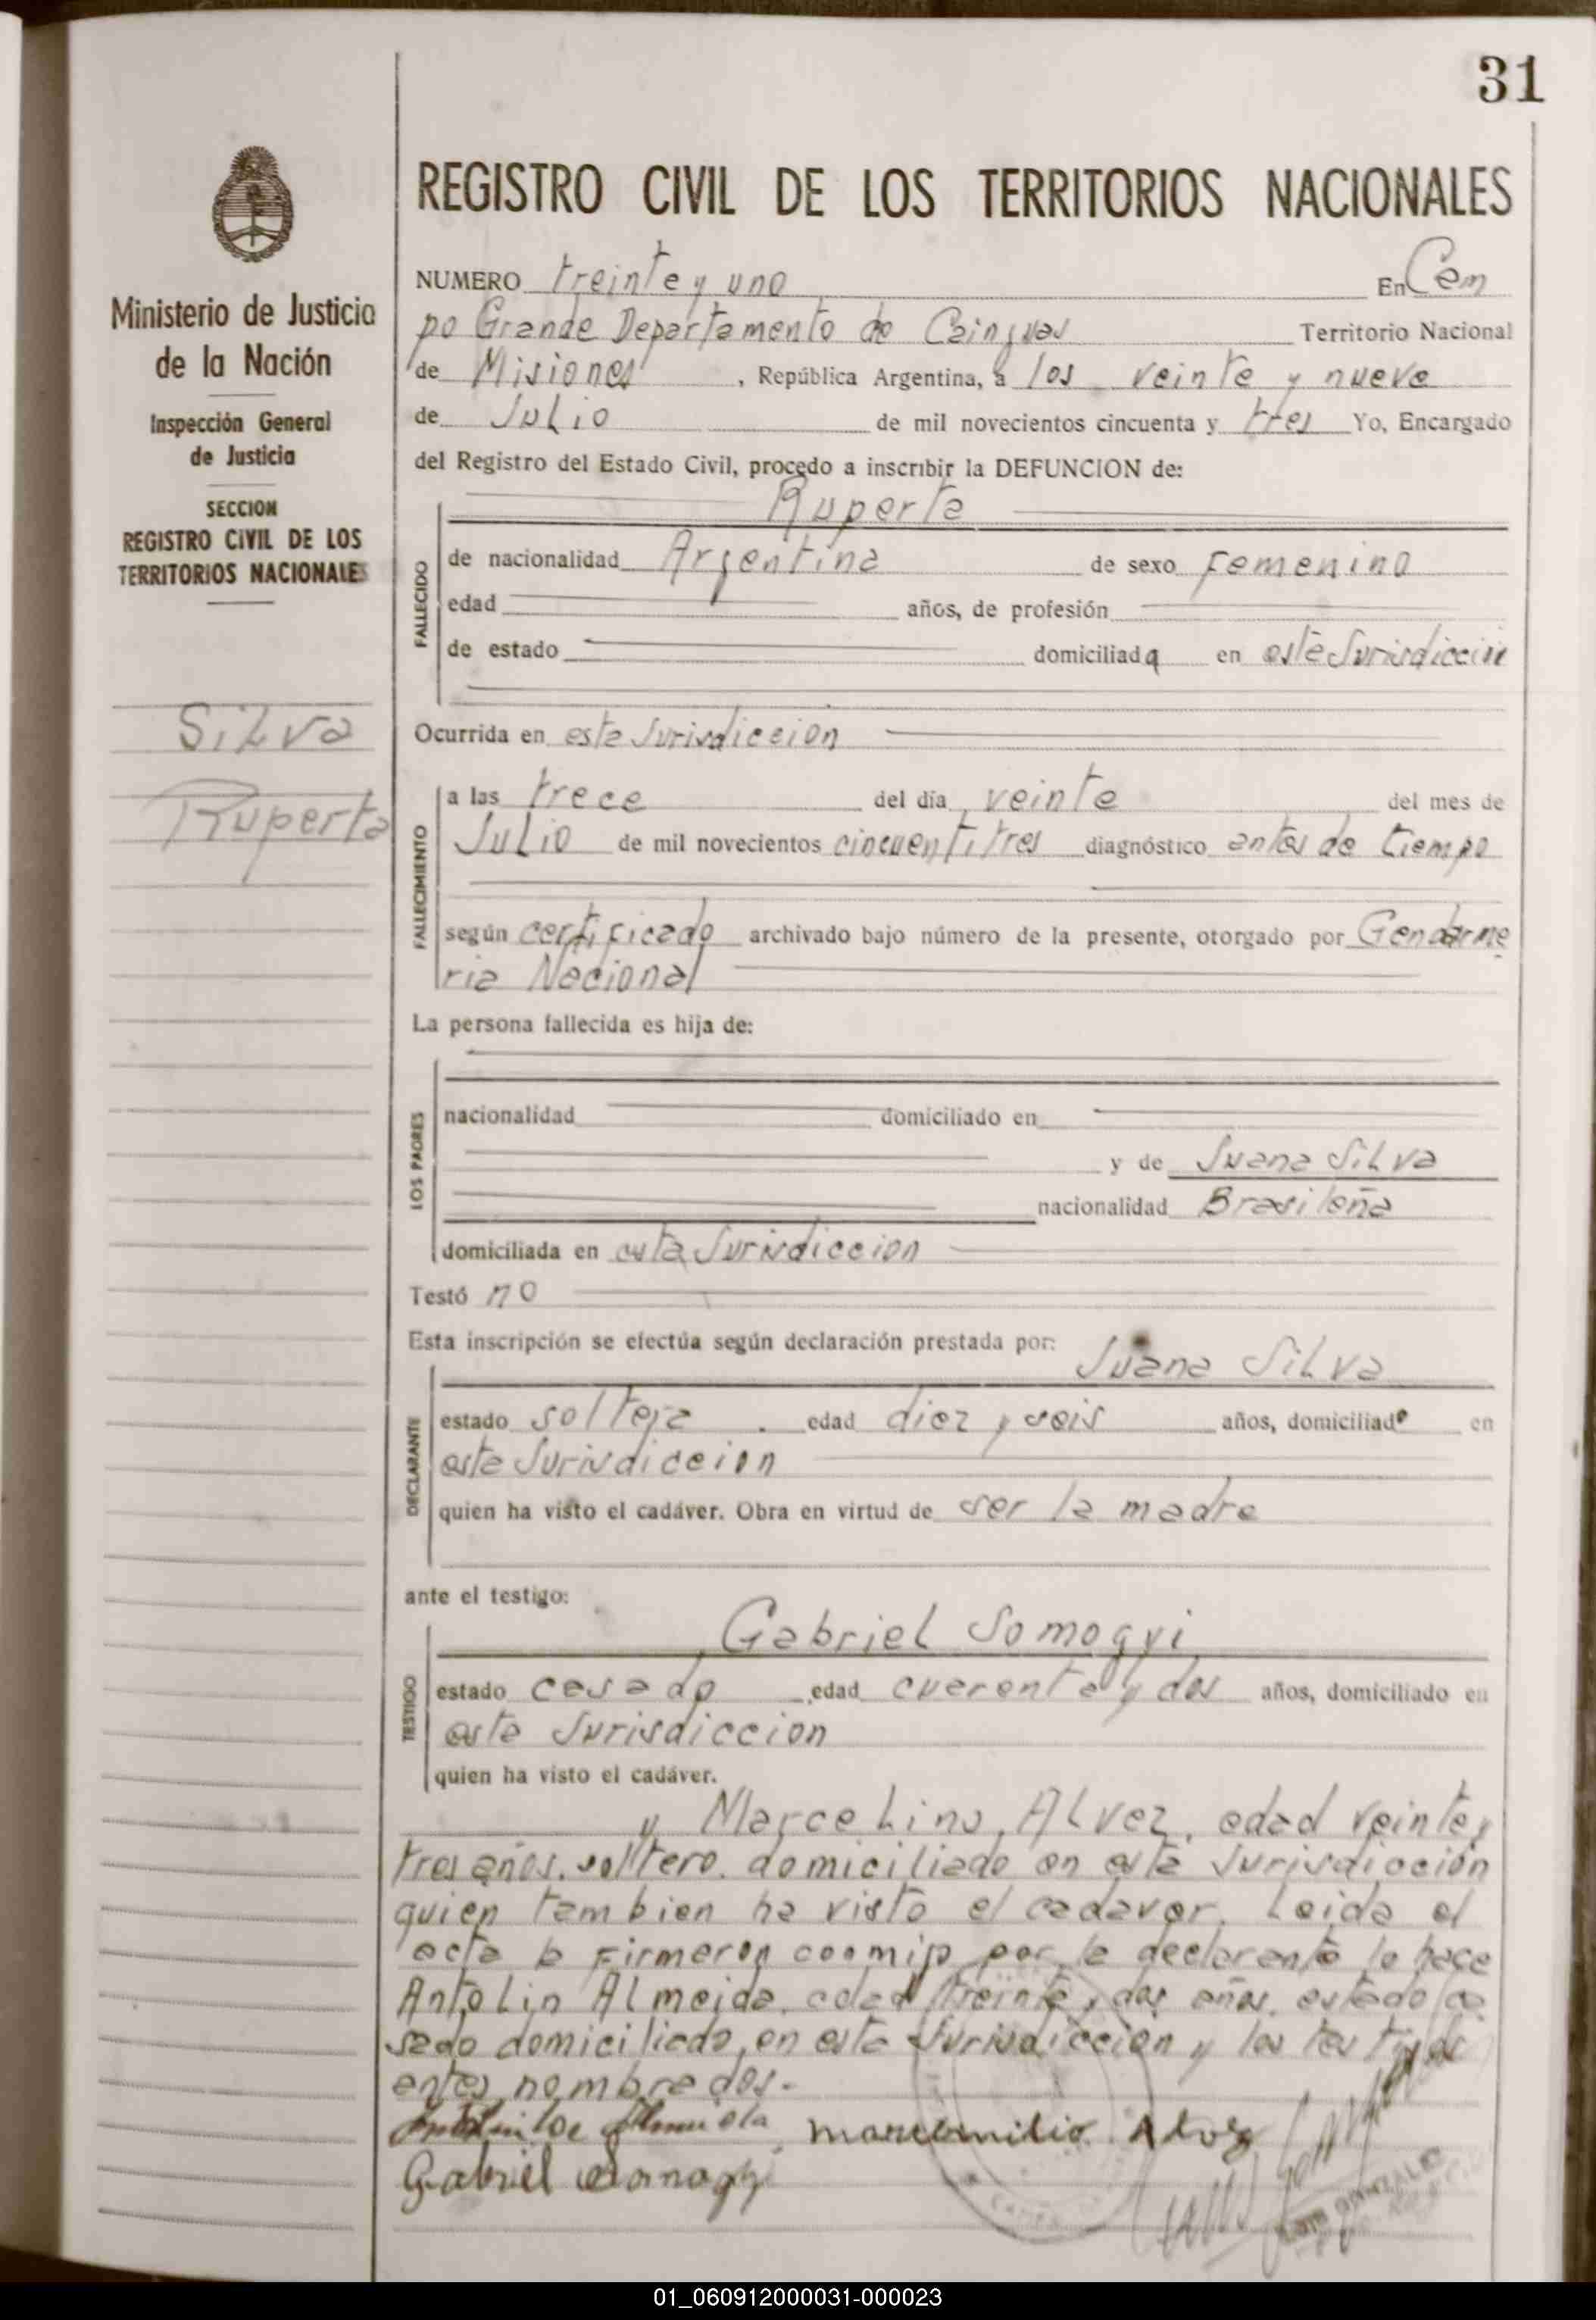 31
REGISTRO CIVIL DE LOS TERRITORIOS NACIONALES
Ministerio de Justicia
de la Nación
Inspección General
de Justicia
SECCION
REGISTRO CIVIL DE LOS
TERRITORIOS NACIONALES
Silva
Ruperta
NUMERO treinta y uno En Cam
po Grande Departamento de Cainguas Territorio Nacional
de Misiones, República Argentina, a los veinte y nueve
de Julio de mil novecientos cincuenta y tres Yo, Encargado
del Registro del Estado Civil, procedo a inscribir la DEFUNCION de:
Ruperta
FALLECIDO
de nacionalidad Argentina de sexo Femenino
edad años, de profesión
de estado domiciliada en esta Jurisdiccion
Ocurrida en esta Jurisdiccion
FALLECIMIENTO
a las trece del día veinte del mes de
Julio de mil novecientos cincuentitres diagnóstico antes de tiempo
según certificado archivado bajo número de la presente, otorgado por Gendarme
ria Nacional
La persona fallecida es hija de:
LOS PADRES
nacionalidad domiciliado en
y de Juana Silva
nacionalidad Brasileña
domiciliada en esta Jurisdiccion
Testó no
Esta inscripción se efectúa según declaración prestada por:
Juana Silva
DECLARANTE
estado soltera edad diez y seis años, domiciliada en
esta Jurisdiccion
quien ha visto el cadáver. Obra en virtud de ser la madre
ante el testigo:
Gabriel Somogyi
TESTIGO
estado casado edad cuarenta y dos años, domiciliado en
esta Jurisdiccion
quien ha visto el cadáver.
y Marcelino Alvez, edad veinte y
tres años, soltero, domiciliado en esta Jurisdicción
quien tambien ha visto el cadaver. Leida el
acta la firmaron conmigo por la declarante lo hace
Antolin Almeida, edad treinta y dos años, estado ca
sado domiciliado en esta Jurisdiccion y los testigos
antes nombrados.-
Alvez
Gabriel Somogyi
01_060912000031-000023